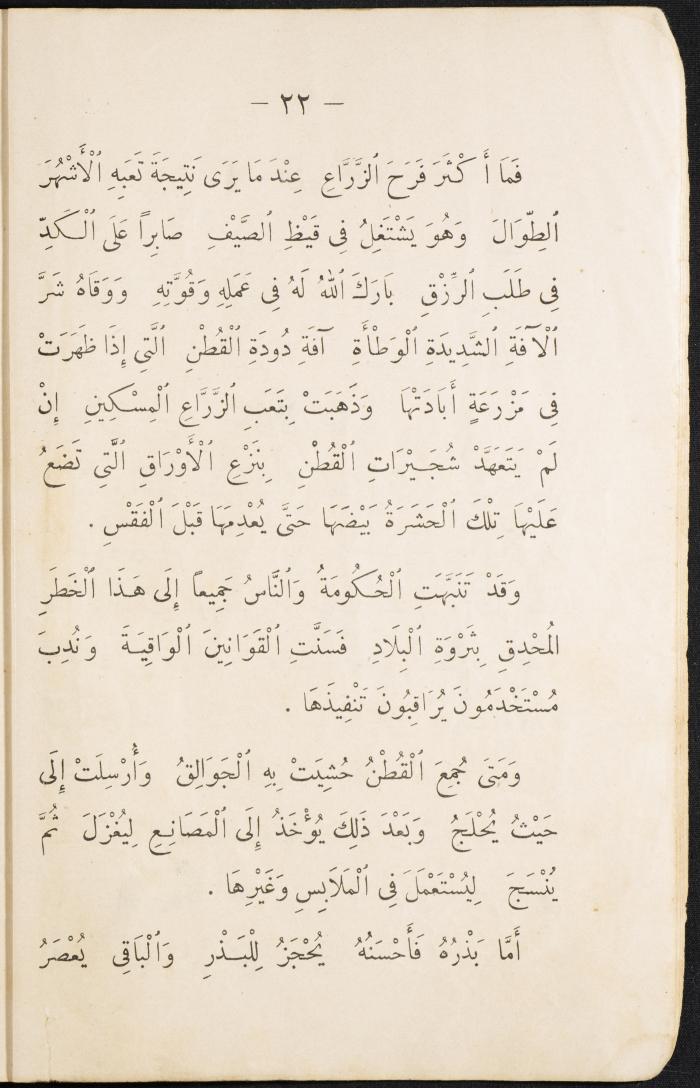 — ٢٢ —
فَمَا أَكْثَرَ فَرَحَ ٱلزَّرَّاعِ عِنْدَ مَا يَرَى نَتِيجَةَ تَعَبِهِ ٱلْأَشْهُرَ
ٱلطِّوَالَ وَهُوَ يَشْتَغِلُ فِى قَيْظِ ٱلصَّيْفِ صَابِرًا عَلَى ٱلْكَدِّ
فِى طَلَبِ ٱلرِّزْقِ بَارَكَ ٱللهُ لَهُ فِى عَمَلِهِ وَقُوَّتِهِ وَوَقَاهُ شَرَّ
ٱلْآفَةِ ٱلشَّدِيدَةِ ٱلْوَطْأَةِ آفَةِ دُودَةِ ٱلْقُطْنِ ٱلَّتِى إِذَا ظَهَرَتْ
فِى مَزْرَعَةٍ أَبَادَتْهَا وَذَهَبَتْ بِتَعَبِ ٱلزَّرَّاعِ ٱلْمِسْكِينِ إِنْ
لَمْ يَتَعَهَّدْ شُجَيْرَاتِ ٱلْقُطْنِ بِنَزْعِ ٱلْأَوْرَاقِ ٱلَّتِى تَضَعُ
عَلَيْهَا تِلْكَ ٱلْحَشَرَةُ بَيْضَهَا حَتَّى يُعْدِمَهَا قَبْلَ ٱلْفَقْسِ .
وَقَدْ تَنَبَّهَتِ ٱلْحُكُومَةُ وَٱلنَّاسُ جَمِيعًا إِلَى هَذَا ٱلْخَطَرِ
ٱلْمُحْدِقِ بِثَرْوَةِ ٱلْبِلَادِ فَسَنَّتِ ٱلْقَوَانِينَ ٱلْوَاقِيَةَ وَنُدِبَ
مُسْتَخْدَمُونَ يُرَاقِبُونَ تَنْفِيذَهَا .
وَمَتَى جُمِعَ ٱلْقُطْنُ حُشِيَتْ بِهِ ٱلْجَوَالِقُ وَأُرْسِلَتْ إِلَى
حَيْثُ يُحْلَجُ وَبَعْدَ ذَلِكَ يُؤْخَذُ إِلَى ٱلْمَصَانِعِ لِيُغْزَلَ ثُمَّ
يُنْسَجَ لِيُسْتَعْمَلَ فِى ٱلْمَلَابِسِ وَغَيْرِهَا .
أَمَّا بَذْرُهُ فَأَحْسَنُهُ يُحْجَزُ لِلْبَذْرِ وَٱلْبَاقِى يُعْصَرُ